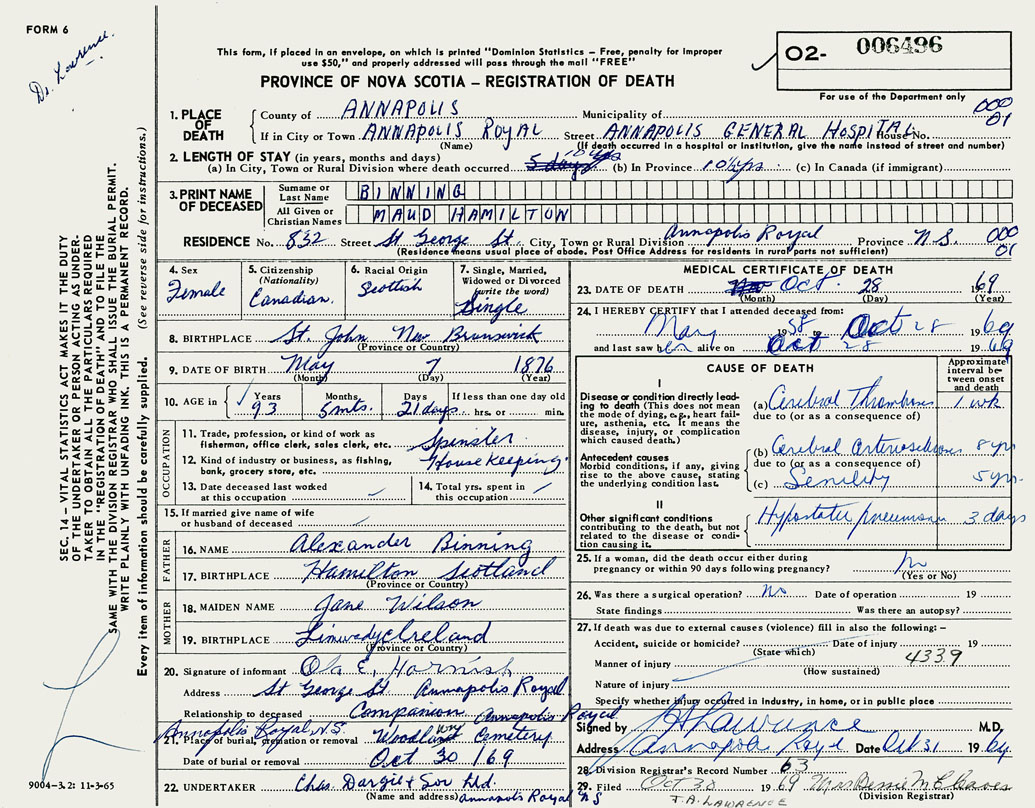 FORM 6
Dr. Lawrence.
This form, if placed in an envelope, on which is printed "Dominion Statistics – Free, penalty for improper
use $50," and properly addressed will pass through the mail "FREE"
PROVINCE OF NOVA SCOTIA – REGISTRATION OF DEATH
O2- 006496
For use of the Department only
1. PLACE OF DEATH
County of ANNAPOLIS Municipality of 000
If in City or Town ANNAPOLIS ROYAL Street ANNAPOLIS GENERAL HOSPITAL House No. 01
(Name) (If death occurred in a hospital or institution, give the name instead of street and number)
2. LENGTH OF STAY (in years, months and days)
(a) In City, Town or Rural Division where death occurred 5 days 10 yrs (b) In Province 10 yrs (c) In Canada (if immigrant)
3. PRINT NAME OF DECEASED
Surname or Last Name BINNING
All Given or Christian Names MAUD HAMILTON
RESIDENCE No. 832 Street St George St. City, Town or Rural Division Annapolis Royal Province N.S. 000
(Residence means usual place of abode. Post Office Address for residents in rural parts not sufficient) 01
4. Sex Female
5. Citizenship (Nationality) Canadian.
6. Racial Origin Scottish
7. Single, Married, Widowed or Divorced (write the word) Single
8. BIRTHPLACE St. John New Brunswick
(Province or Country)
9. DATE OF BIRTH May 7 1876
(Month) (Day) (Year)
10. AGE in Years 93 Months 5 mts. Days 21 days If less than one day old hrs. or min.
OCCUPATION
11. Trade, profession, or kind of work as fisherman, office clerk, sales clerk, etc. Spinster
12. Kind of industry or business, as fishing, bank, grocery store, etc. House keeping.
13. Date deceased last worked at this occupation
14. Total yrs. spent in this occupation
15. If married give name of wife or husband of deceased
FATHER
16. NAME Alexander Binning
17. BIRTHPLACE Hamilton Scotland
(Province or Country)
MOTHER
18. MAIDEN NAME Jane Wilson
19. BIRTHPLACE Limavady Ireland
(Province or Country)
20. Signature of informant Ola E. Harnish
Address St George St. Annapolis Royal
Relationship to deceased Companion Annapolis Royal
Annapolis Royal N.S.
21. Place of burial, cremation or removal Woodlawn Cemetery
Date of burial or removal Oct 30 / 69
22. UNDERTAKER Chas. Dargie & Son Ltd.
(Name and address) Annapolis Royal N S
MEDICAL CERTIFICATE OF DEATH
23. DATE OF DEATH Oct. 28 1969
(Month) (Day) (Year)
24. I HEREBY CERTIFY that I attended deceased from:
May 1958 to Oct 28 1969
and last saw her alive on Oct 28 1969
CAUSE OF DEATH
Approximate interval between onset and death
I
Disease or condition directly leading to death (This does not mean the mode of dying, e.g., heart failure, asthenia, etc. It means the disease, injury, or complication which caused death.)
(a) Cerebral Thrombosis 1 wk
due to (or as a consequence of)
Antecedent causes
Morbid conditions, if any, giving rise to the above cause, stating the underlying condition last.
(b) Cerebral Arteriosclerosis 8 yrs
due to (or as a consequence of)
(c) Senility 5 yrs
II
Other significant conditions contributing to the death, but not related to the disease or condition causing it.
Hypostatic pneumonia 3 days
25. If a woman, did the death occur either during pregnancy or within 90 days following pregnancy? No
(Yes or No)
26. Was there a surgical operation? No Date of operation 19
State findings Was there an autopsy?
27. If death was due to external causes (violence) fill in also the following:–
Accident, suicide or homicide? Date of injury 19
(State which)
Manner of injury 4339
(How sustained)
Nature of injury
Specify whether injury occurred in Industry, in home, or in public place
Signed by Lawrence M.D.
Address Annapolis Royal Date Oct 31 1969
28. Division Registrar's Record Number 63
29. Filed Oct 30 1969 Mrs Bernie
(Division Registrar)
J.A. LAWRENCE
SEC. 14 – VITAL STATISTICS ACT MAKES IT THE DUTY
OF THE UNDERTAKER OR PERSON ACTING AS UNDER-
TAKER TO OBTAIN ALL THE PARTICULARS REQUIRED
IN THE "REGISTRATION OF DEATH" AND TO FILE THE
SAME WITH THE DIVISION REGISTRAR WHO SHALL ISSUE THE BURIAL PERMIT.
WRITE PLAINLY WITH UNFADING INK. THIS IS A PERMANENT RECORD.
Every item of information should be carefully supplied. (See reverse side for instructions.)
9004-3.2: 11-3-65